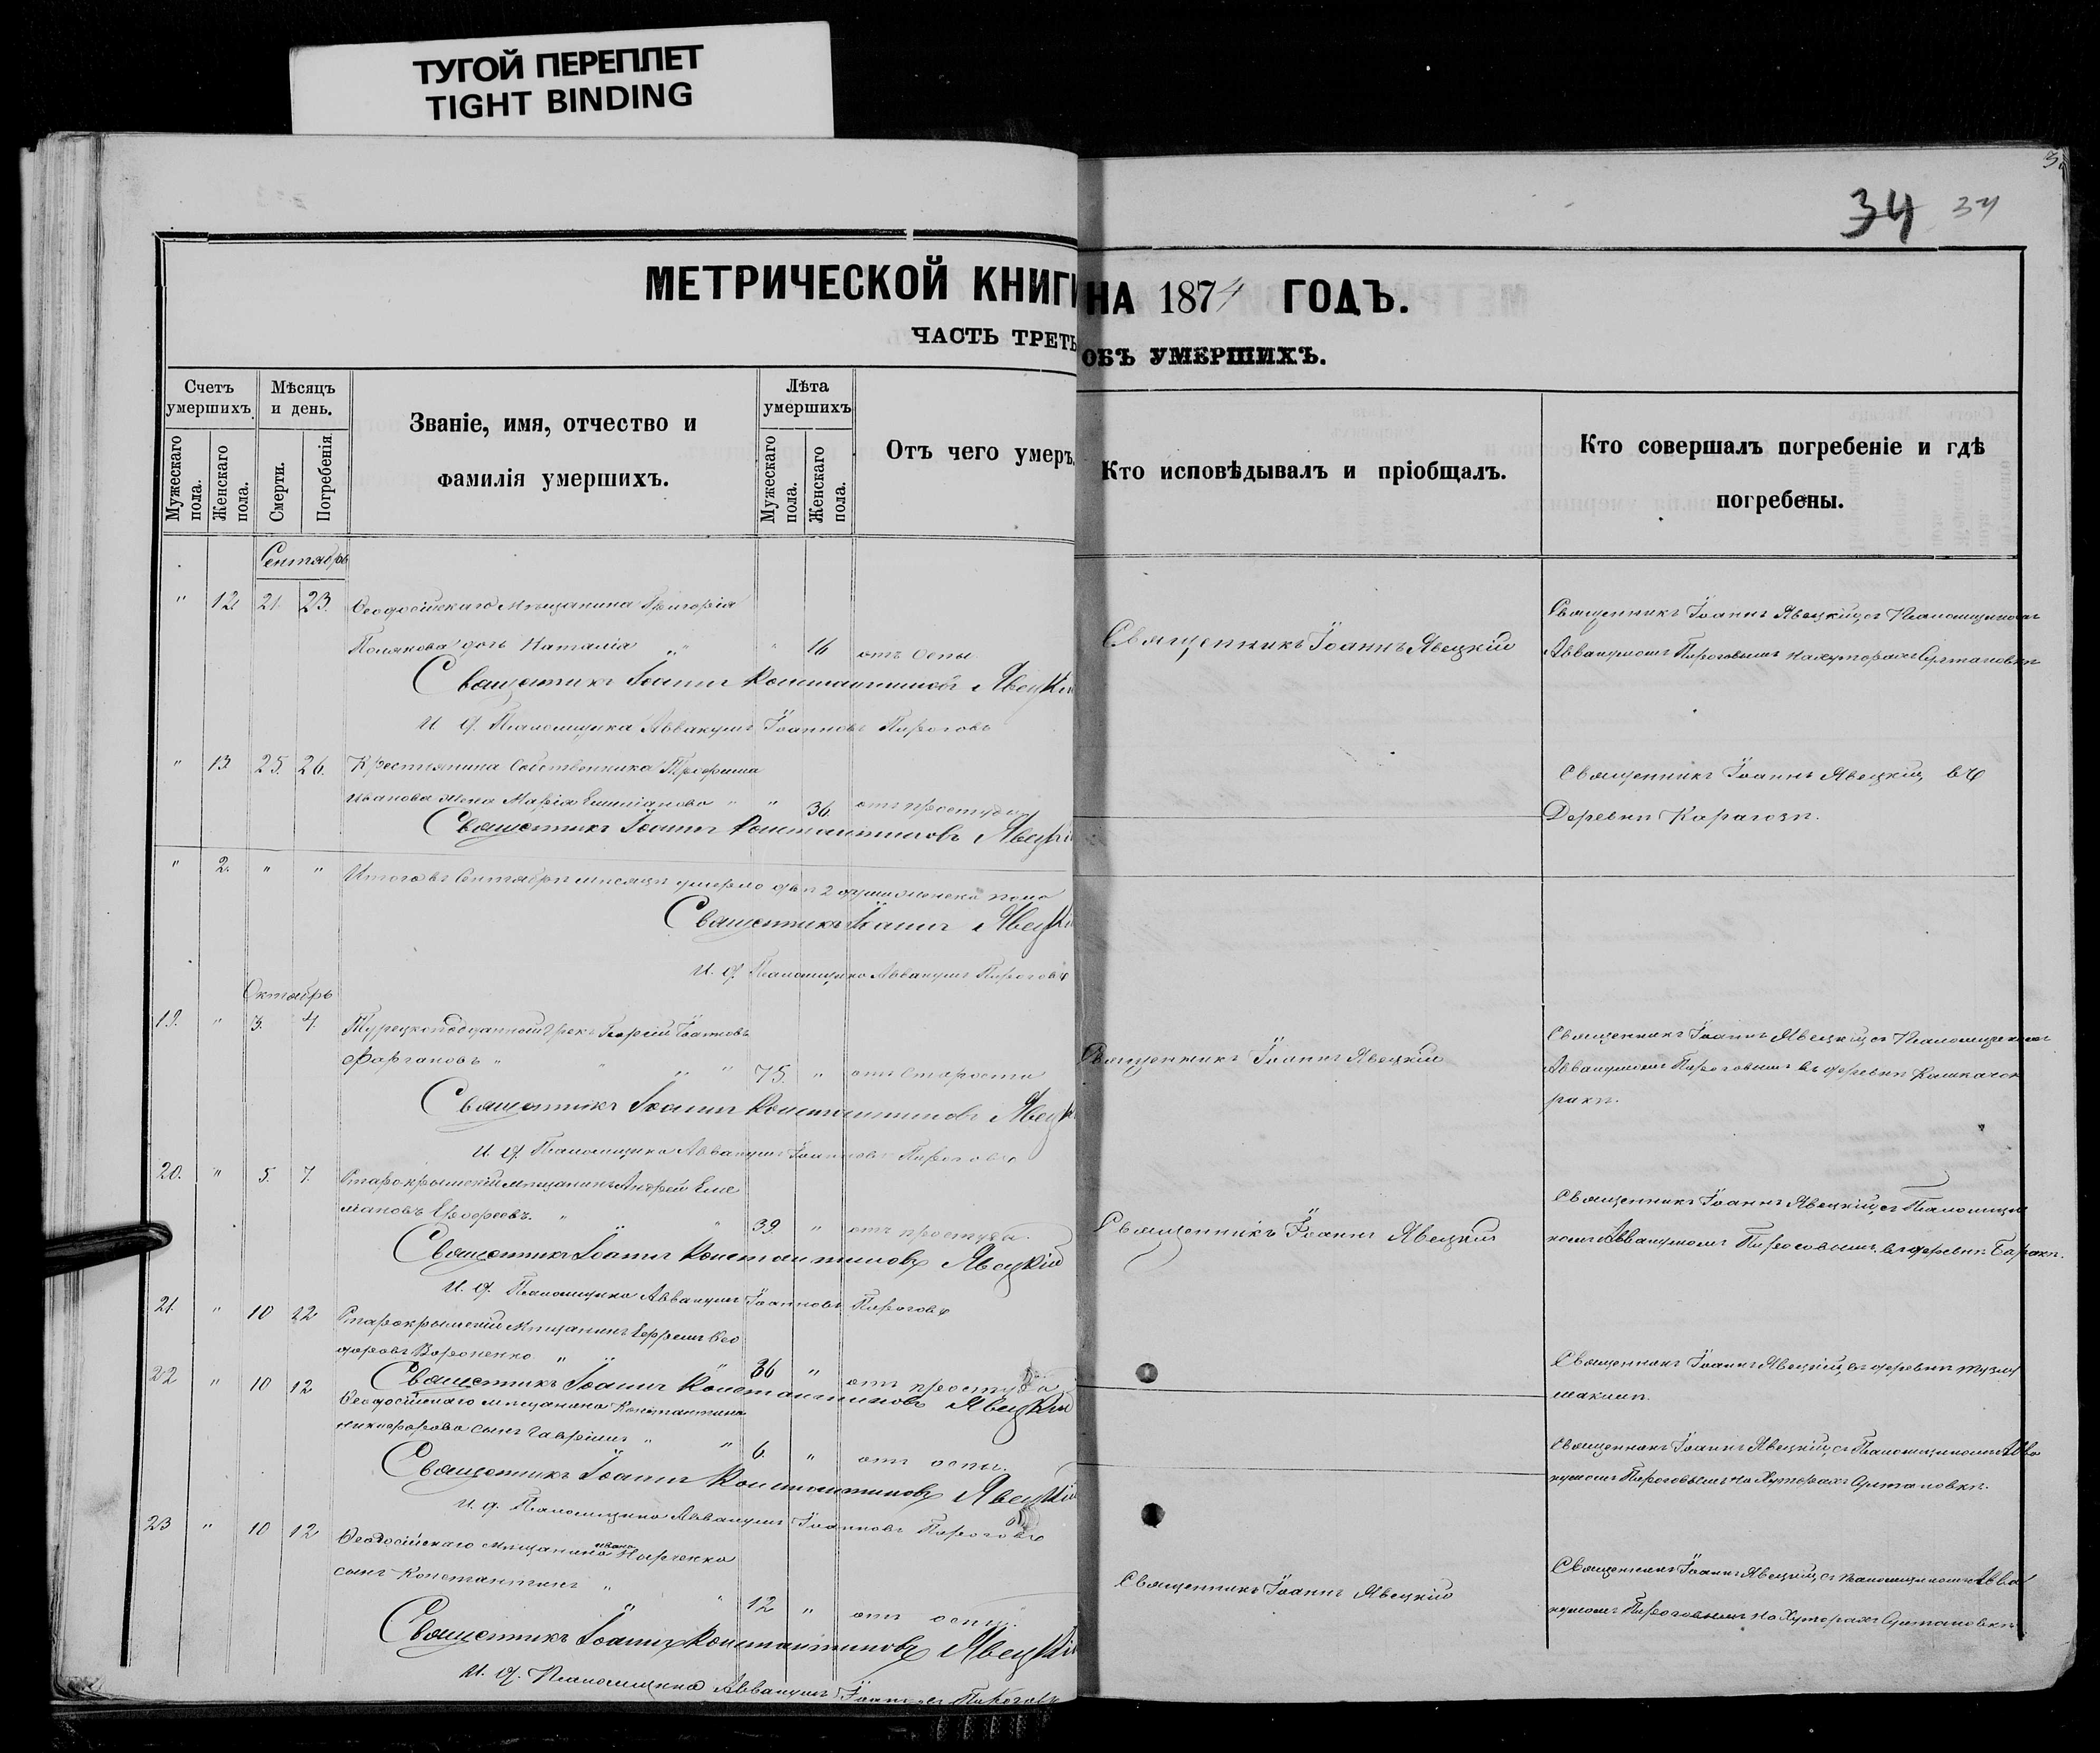 ТУГОЙ ПЕРЕПЛЕТ
TIGHT BINDING
34 34
МЕТРИЧЕСКОЙ КНИГИ НА 1874 ГОДЪ.
ЧАСТЬ ТРЕТЬ ОБЪ УМЕРШИХЪ.
Счетъ умершихъ.
Мужескаго пола.
Женскаго пола.
Мѣсяцъ и день.
Смерти.
Погребенія.
Званіе, имя, отчество и
фамилія умершихъ.
Лѣта умершихъ
Мужескаго пола.
Женскаго пола.
Отъ чего умеръ.
Кто исповѣдывалъ и пріобщалъ.
Кто совершалъ погребеніе и гдѣ
погребены.
Сентябрь
" 12 21. 23. Ѳеодосійскаго мѣщанина Григорія
Полякова дочь Наталія " " 16 отъ оспы
Священникъ Іоаннъ Явецкій
Священникъ Іоаннъ Явецкій съ Псаломщикомъ
Аввакумомъ Пироговымъ на хуторахъ Султановки
Священникъ Іоаннъ Константиновъ Явецкій
И. д. Псаломщика Аввакумъ Іоанновъ Пироговъ
" 13 25. 26. Крестьянина Собственника Трофима
Иванова жена Марія Емиліанова " " 36 отъ простуды
Священникъ Іоаннъ Явецкій въ
Деревни Карагози.
Священникъ Іоаннъ Константиновъ Явецкій
" 2. " " Итого въ Сентябрѣ мѣсяцѣ умерло двѣ 2 души женска пола
Священникъ Іоаннъ Явецкій
И. д. Псаломщика Аввакумъ Пироговъ
Октябрь
19. " 3. 4. Турецкоподданный Грекъ Георгій Іоанновъ
" " " 75. " отъ старости
Священникъ Іоаннъ Явецкій
Священникъ Іоаннъ Явецкій съ Псаломщикомъ
Аввакумомъ Пироговымъ въ деревни
Священникъ Іоаннъ Константиновъ Явецкій
И. д. Псаломщика Аввакумъ Іоанновъ Пироговъ
20. " 5. 7. Старокрымскій мѣщанинъ Андрей Еме
ліановъ " " 39. " отъ простуды.
Священникъ Іоаннъ Явецкій
Священникъ Іоаннъ Явецкій съ Псаломщи
комъ Аввакумомъ Пироговымъ въ деревни
Священникъ Іоаннъ Константиновъ Явецкій
И. д. Псаломщика Аввакумъ Іоанновъ Пироговъ
21. " 10 12 Старокрымскій мѣщанинъ Ефремъ Ѳео
доровъ Вороненко " " " 36 " отъ простуды
Священникъ Іоаннъ Явецкій въ деревни
Священникъ Іоаннъ Константиновъ Явецкій
22 " 10 12 Ѳеодосійскаго мѣщанина Константина
Никифорова сынъ Гавріилъ " " 6. " отъ оспы.
Священникъ Іоаннъ Явецкій съ Псаломщикомъ Авва
кумомъ Пироговымъ на Хуторахъ Султановки.
Священникъ Іоаннъ Константиновъ Явецкій
И. д. Псаломщика Аввакумъ Іоанновъ Пироговъ
23 " 10 12 Ѳеодосійскаго мѣщанина Ивана
сынъ Константинъ " " " 12 " отъ оспы.
Священникъ Іоаннъ Явецкій
Священникъ Іоаннъ Явецкій съ псаломщикомъ Авва
кумомъ Пироговымъ на Хуторахъ Султановки
Священникъ Іоаннъ Константиновъ Явецкій
И. д. Псаломщика Аввакумъ Іоанновъ Пироговъ